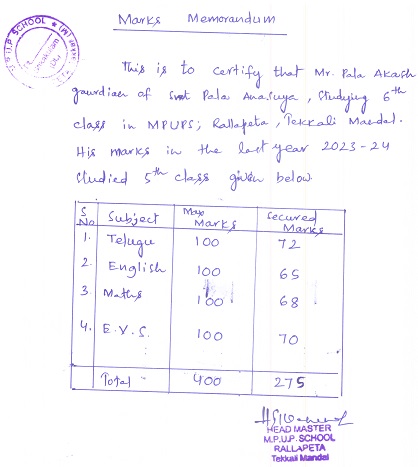 U.P SCHOOL
Marks Memorandum
This is to certify that Mr. Pala Akash
gaurdian of Smt Pala Anasuya, Studying 6th
class in MPUPS; Rallapeta, Tekkali Mandal.
His marks in the last year 2023-24
studied 5th class given below.
S No Subject Max Marks Secured Marks
1. Telugu 100 72
2. English 100 65
3. Maths 100 68
4. E.V.S. 100 70
Total 400 275
HEAD MASTER
M.P.U.P. SCHOOL
RALLAPETA
Tekkali Mandal